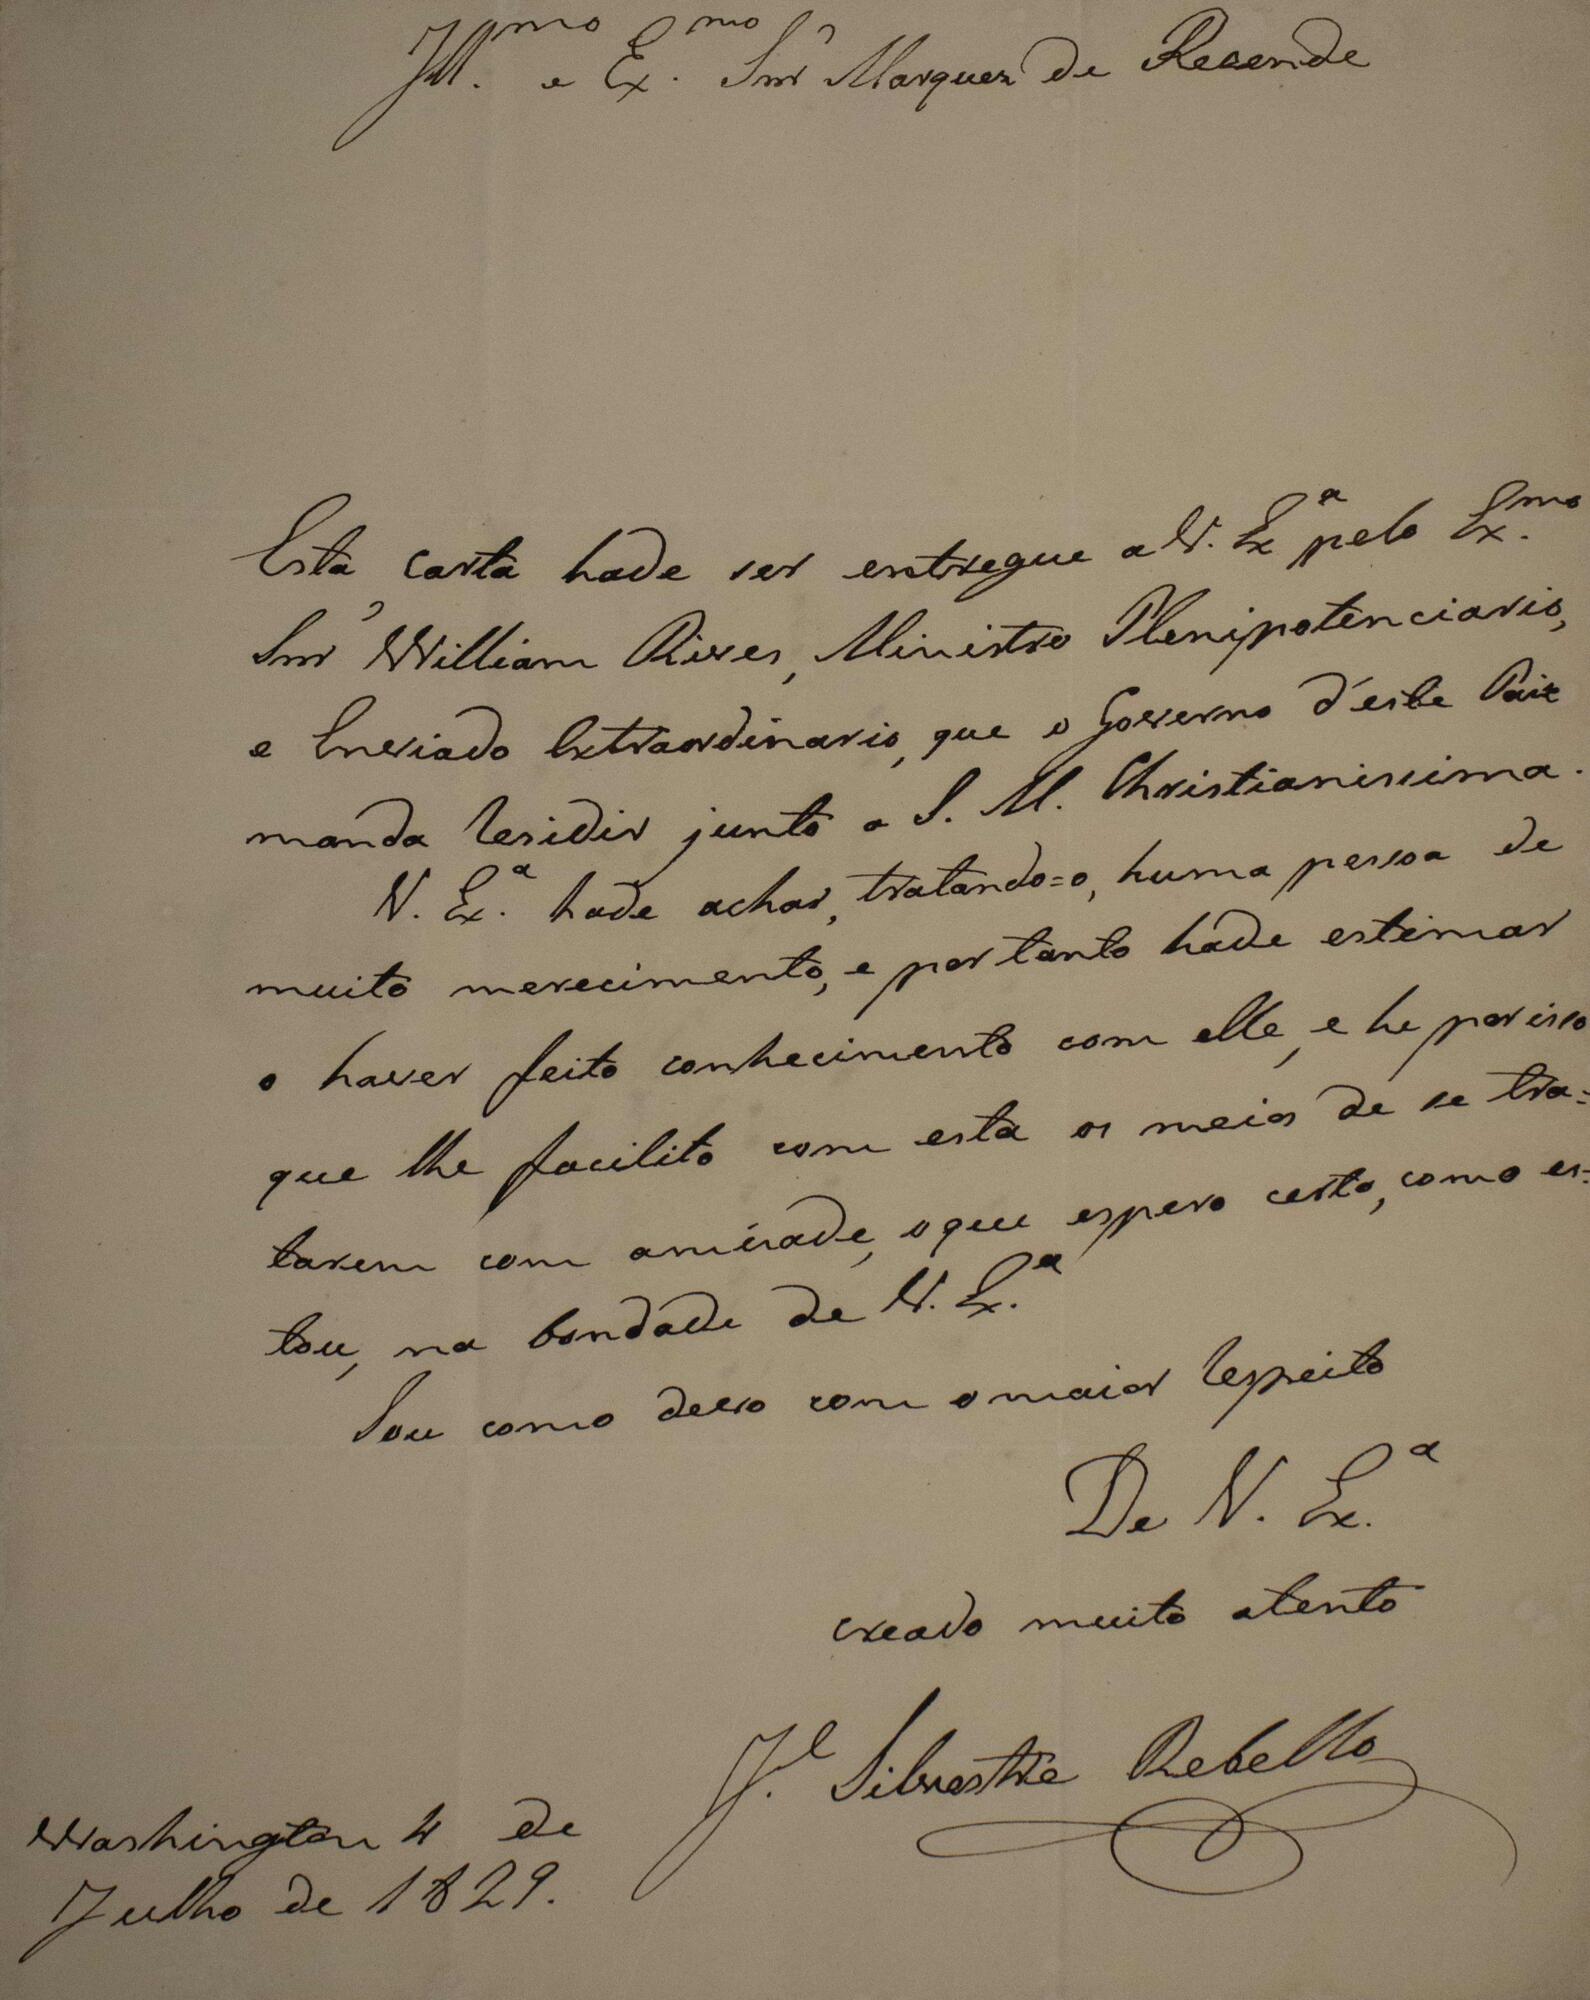 Ill.mo e Ex.mo Snr Marquez de Resende
Esta carta hade ser entregue a V. Ex.a pelo Ex.mo
Snr William Rives, Ministro Plenipotenciario,
e Enviado Extraordinario, que o Governo d'este Paiz
manda residir junto a S. M. Christianissima.
V. Ex.a hade achar, tratando=o, huma pessoa de
muito merecimento, e por tanto hade estimar
o haver feito conhecimento com elle, e he por isso
que lhe facilito com esta os meios de se tra=
tarem com amizade, o que espero certo, como es=
tou, na bondade de V. Ex.a
Sou como devo com o maior respeito
De V. Ex.a
creado muito atento
J.e Silvestre Rebello
Washington 4 de
Julho de 1829.